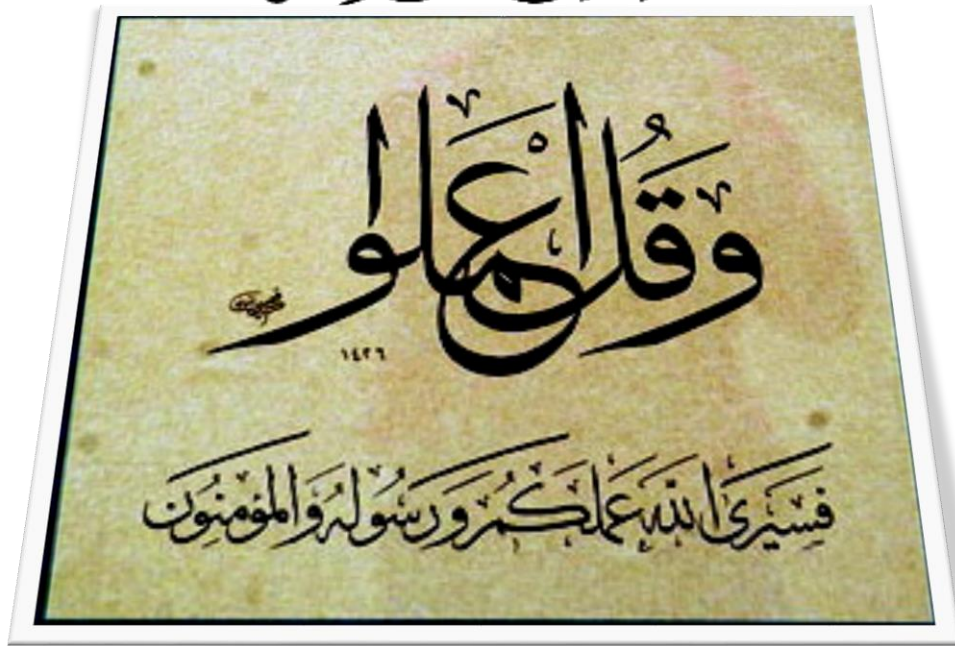 وَقُلِ اعْمَلُوا
١٤٢٦
فَسَيَرَى اللَّهُ عَمَلَكُمْ وَرَسُولُهُ وَالْمُؤْمِنُونَ